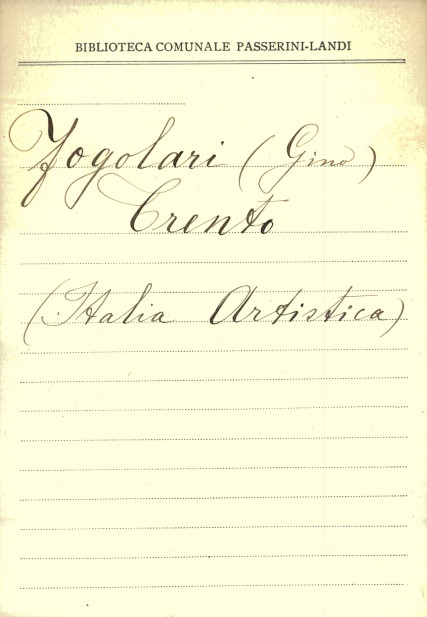 BIBLIOTECA COMUNALE PASSERINI-LANDI
Fogolari (Gino)
Trento
(Italia Artistica)